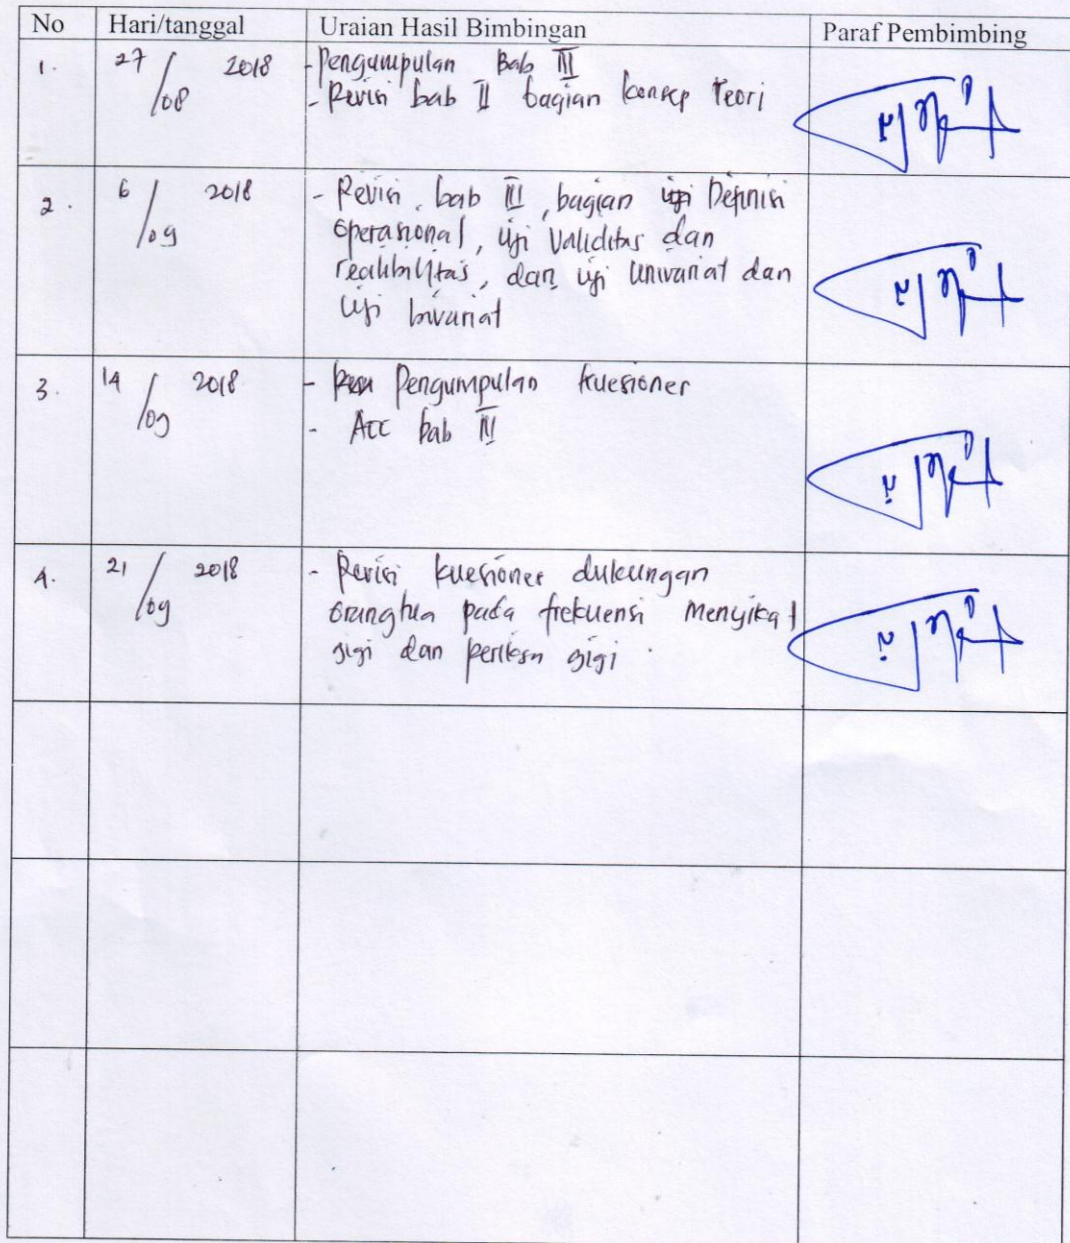 No Hari/tanggal Uraian Hasil Bimbingan Paraf Pembimbing
1. 27/08 2018 - Pengumpulan Bab III
- Revisi bab II bagian konsep Teori
2. 6/09 2018 - Revisi bab III, bagian uji Definisi
operasional, uji Validitas dan
realibilitas, dan uji univariat dan
uji bivariat
3. 14/09 2018 - Pengumpulan kuesioner
- Acc bab III
4. 21/09 2018 - Revisi kuesioner dukungan
orangtua pada frekuensi menyikat
gigi dan periksa gigi